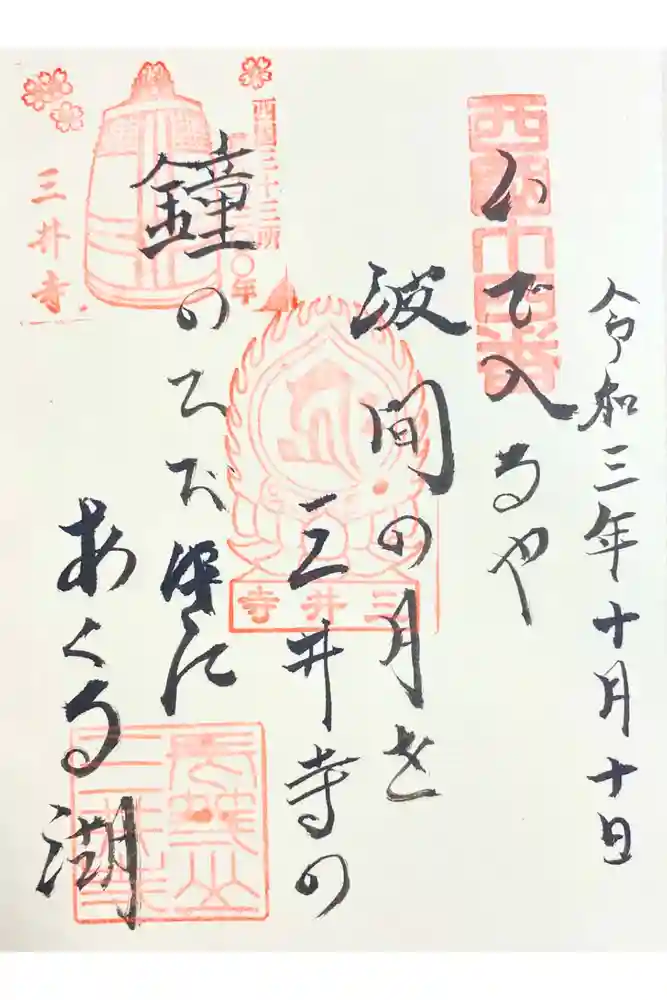 令和三年十月十日
西國十四番
いで入るや
波間の月を
三井寺の
鐘のひびきに
あくる湖
西国三十三所
三井寺
三井寺